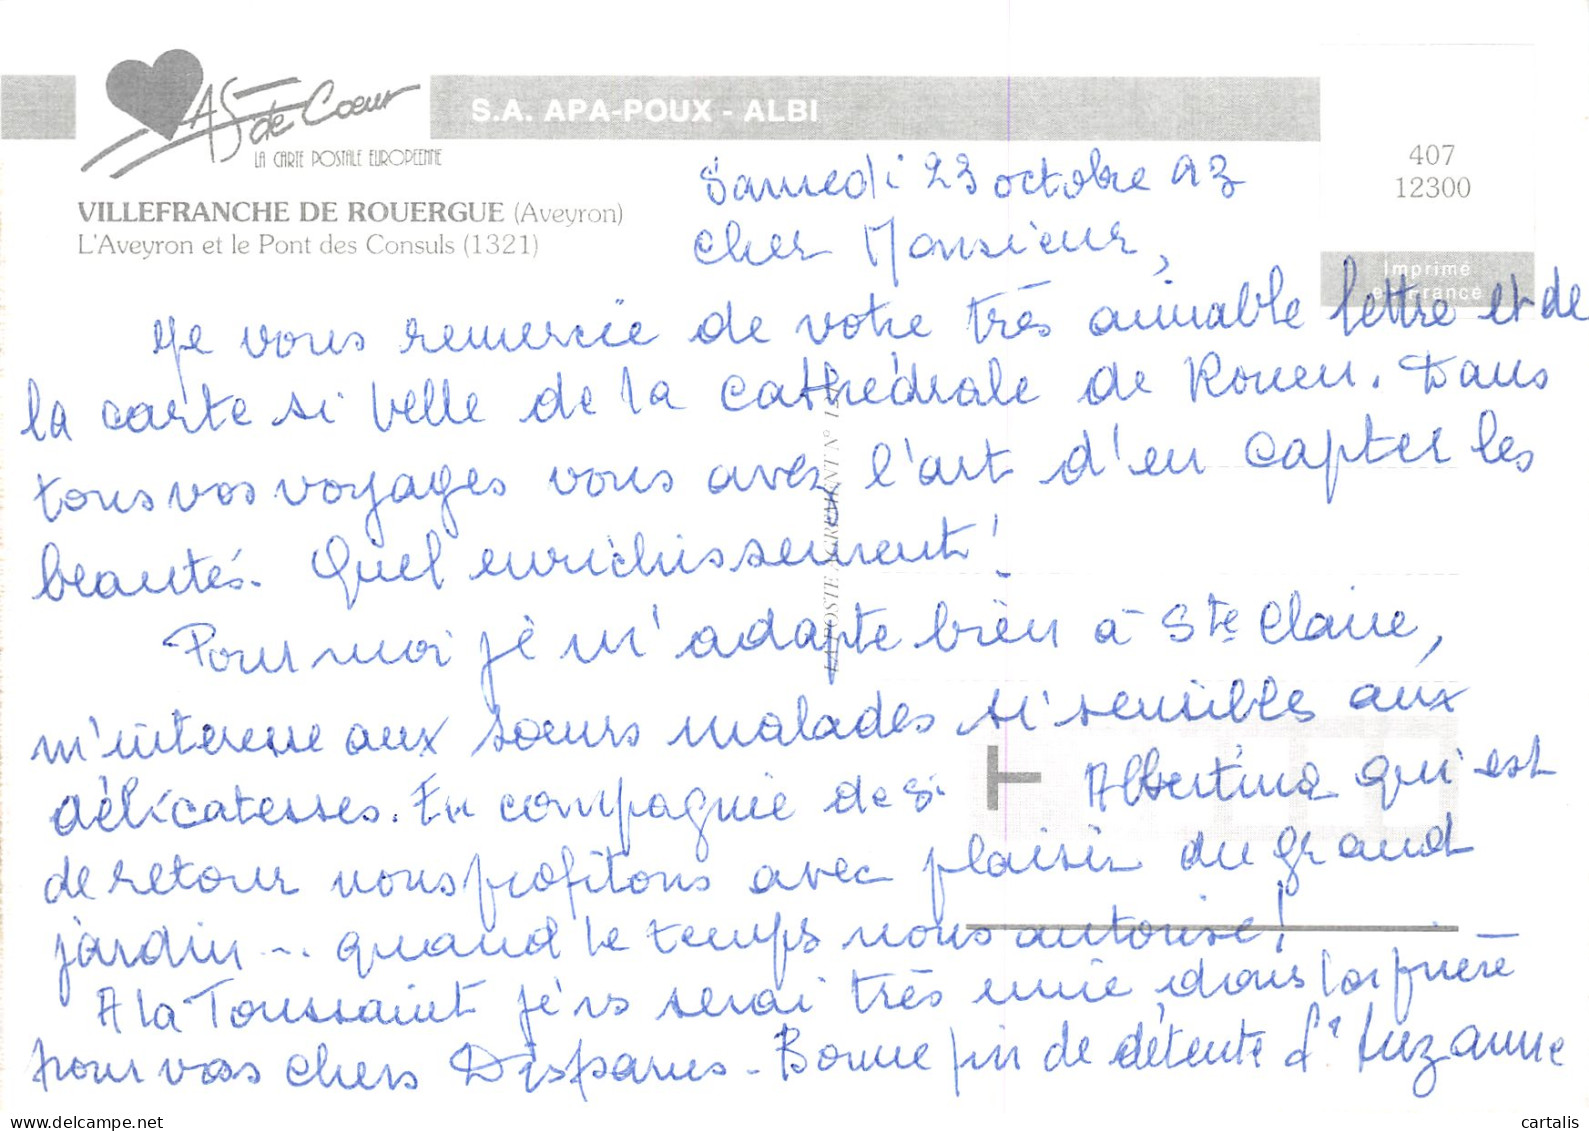 AS de Coeur
LA CARTE POSTALE EUROPEENNE
S.A. APA-POUX - ALBI
407
12300
VILLEFRANCHE DE ROUERGUE (Aveyron)
L'Aveyron et le Pont des Consuls (1321)
Imprimé
en France
Samedi 23 octobre 93
Cher Monsieur,
Je vous remercie de votre très aimable lettre et de
la carte si belle de la cathédrale de Rouen. Dans
tous vos voyages vous avez l'art d'en capter les
beautés. Quel enrichissement!
Pour moi je m'adapte bien à Ste Claire,
m'intéresse aux soeurs malades si sensibles aux
délicatesses. En compagnie de Sr Albertine qui est
de retour nous profitons avec plaisir du grand
jardin... quand le temps nous autorise!
A la Toussaint je vs serai très unie dans la prière
pour vos chers Disparus - Bonne fin de détente Sr Suzanne
LA POSTE AGREMENT N°
delcampe.net
cartalis